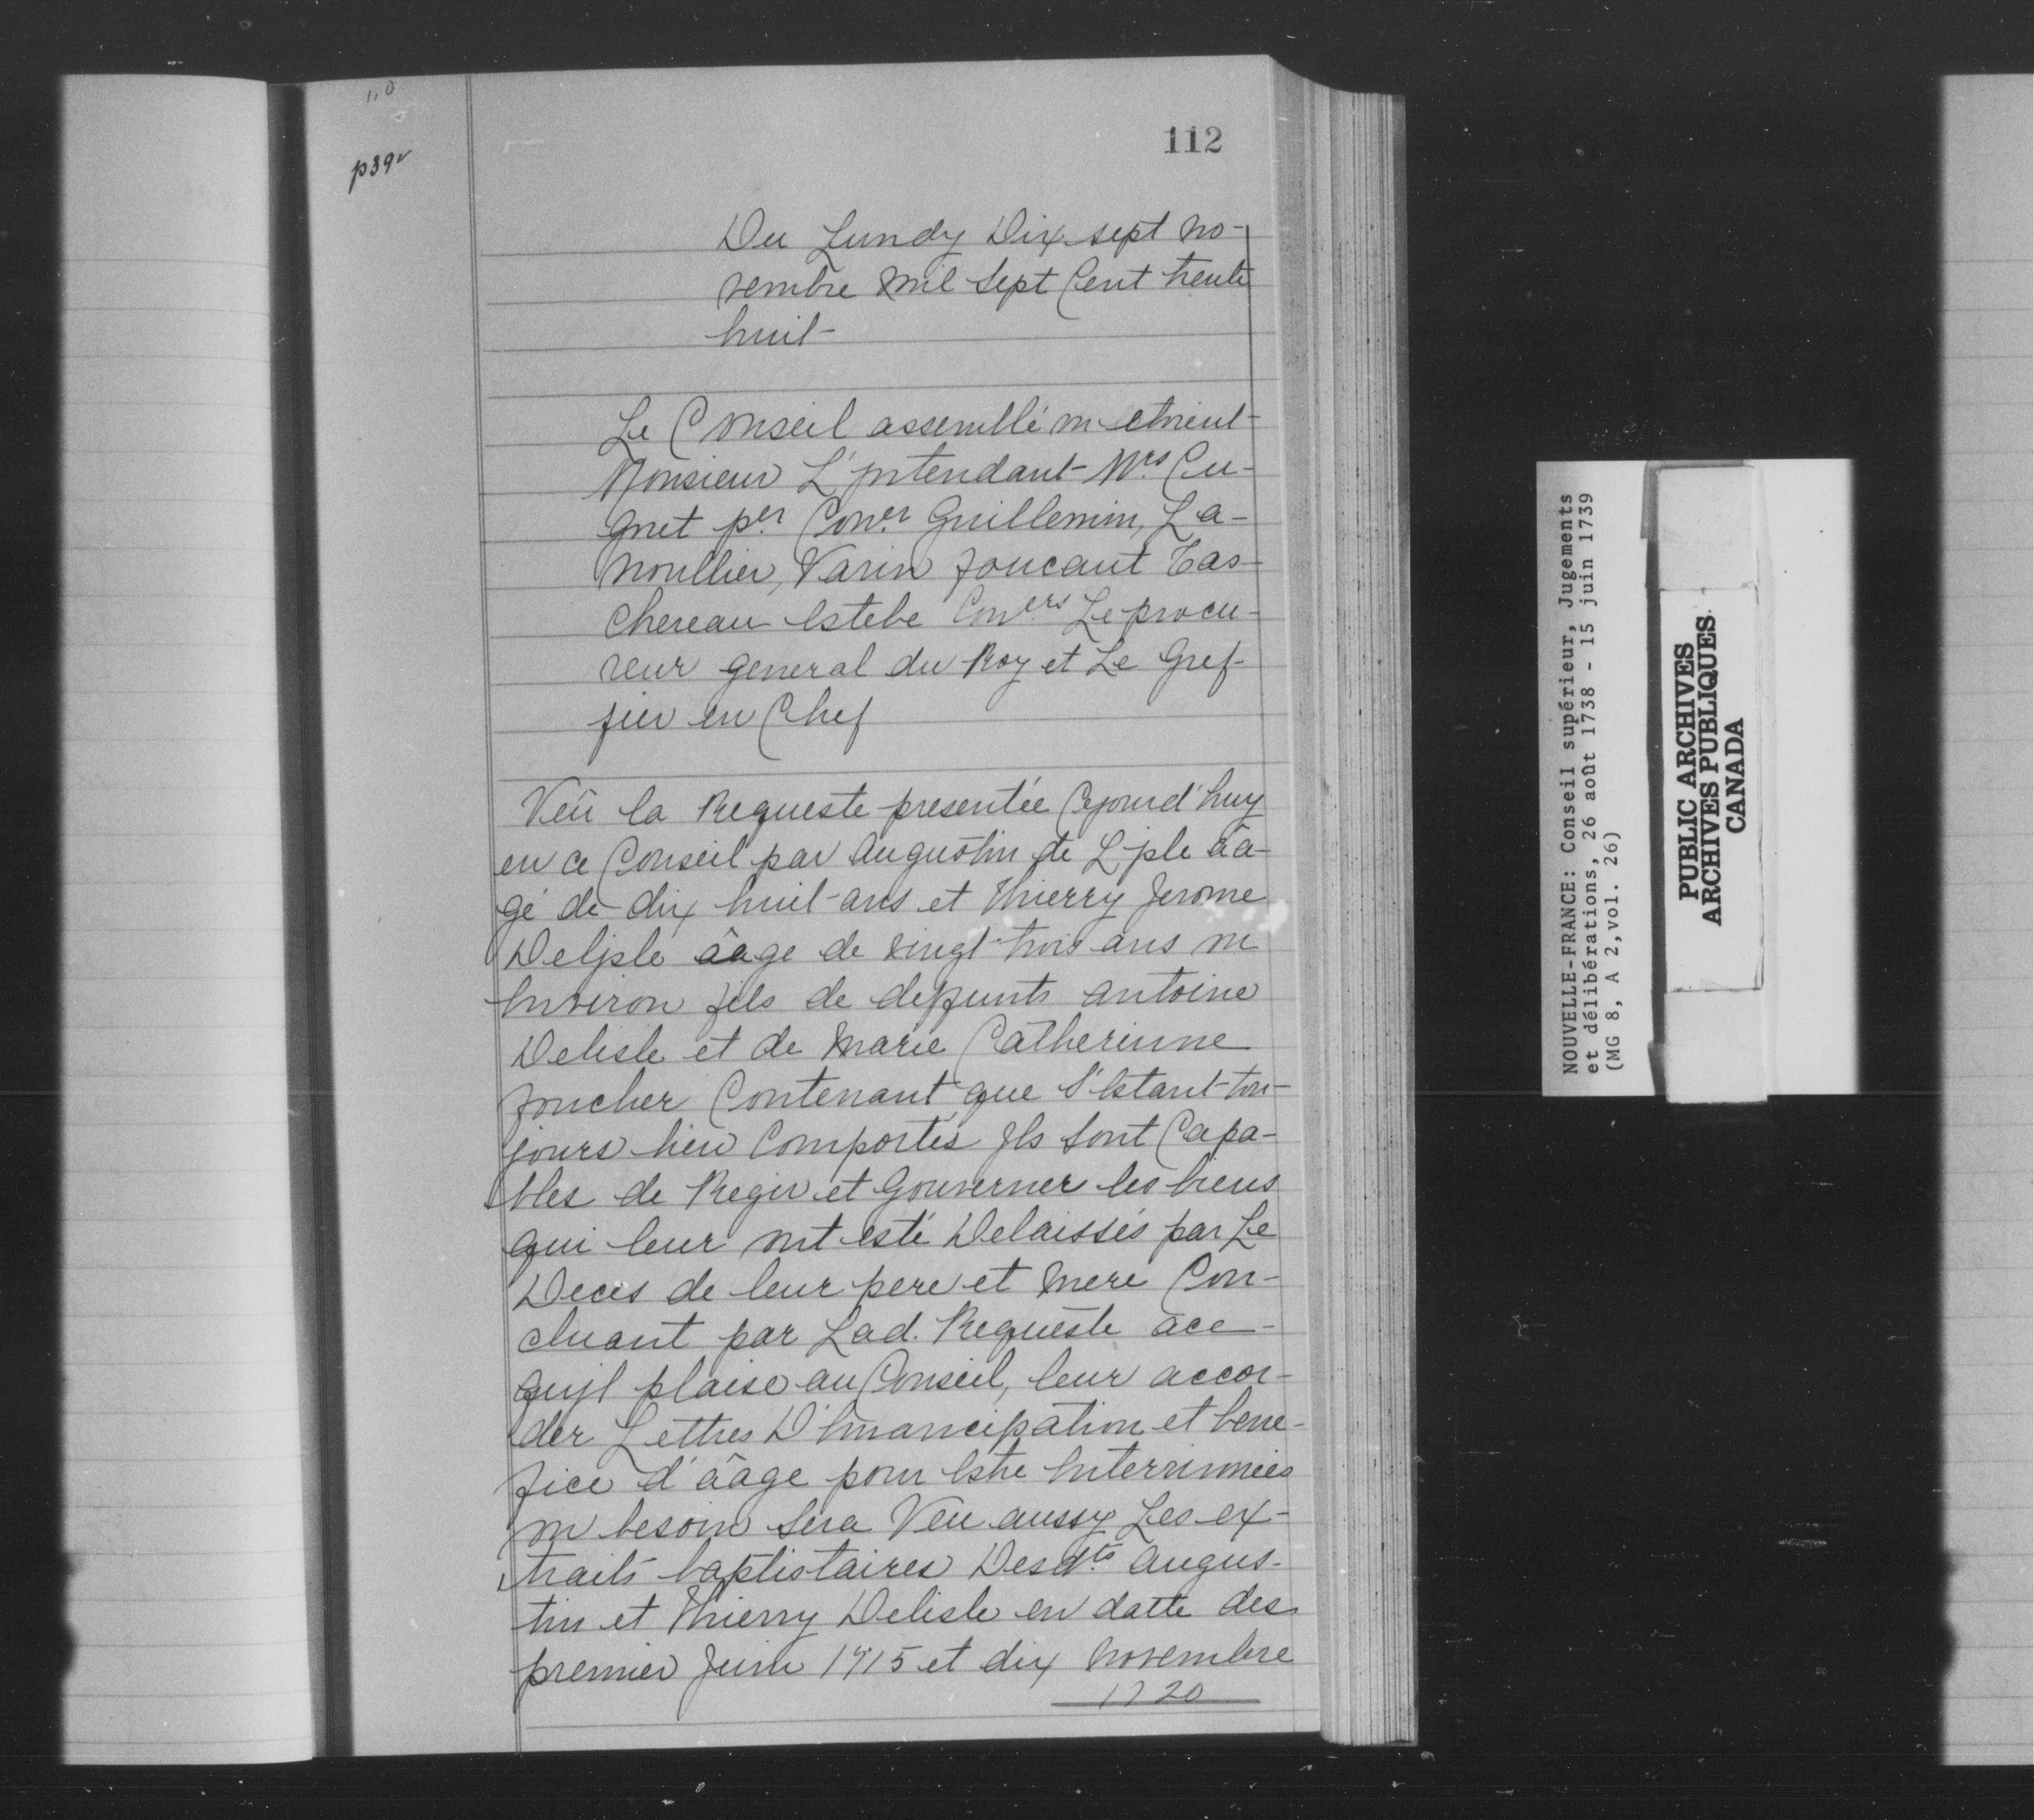 112
p39v
Du Lundy Dix sept no-
vembre Mil Sept Cent trente
huit
Le Conseil assemblé ou etoient
Monsieur L'jntendant Mrs Cu-
gnet per Coner Guillemin, La-
noullier, Varin foucaut Tas-
chereau Estebe Coners Le procu-
reur general du Roy et Le Gref-
fier en Chef
Veû la Requeste presentée Cejourd'huy
en ce Conseil par Augustin de L'jsle âa-
gé de dix huit ans et Thierry Jerome
Deljsle âage de vingt trois ans ou
Environ fils de deffunts Antoine
Delisle et de Marie Catherinne
foucher Contenant que S'Estant tou-
jours bien Comportés Jls Sont Capa-
bles de Regir et Gouverner les biens
qui leur ont esté Delaissés par Le
Deces de leur pere et Mere Con-
cluant par Lad. Requeste ace
qujl plaise au Conseil, leur accor-
der Lettres D'Emancipation et bene-
fice d'âage pour Estre Enterrinnées
ou besoin Sera Veu aussy Les ex-
traits baptistaires Desdts Augus-
tin et Thierry Delisle en datte des
premier Juin 1715 et dix Novembre
1720
NOUVELLE-FRANCE: Conseil supérieur, Jugements
et délibérations, 26 août 1738 - 15 juin 1739
(MG 8, A 2,vol. 26)
PUBLIC ARCHIVES
ARCHIVES PUBLIQUES
CANADA